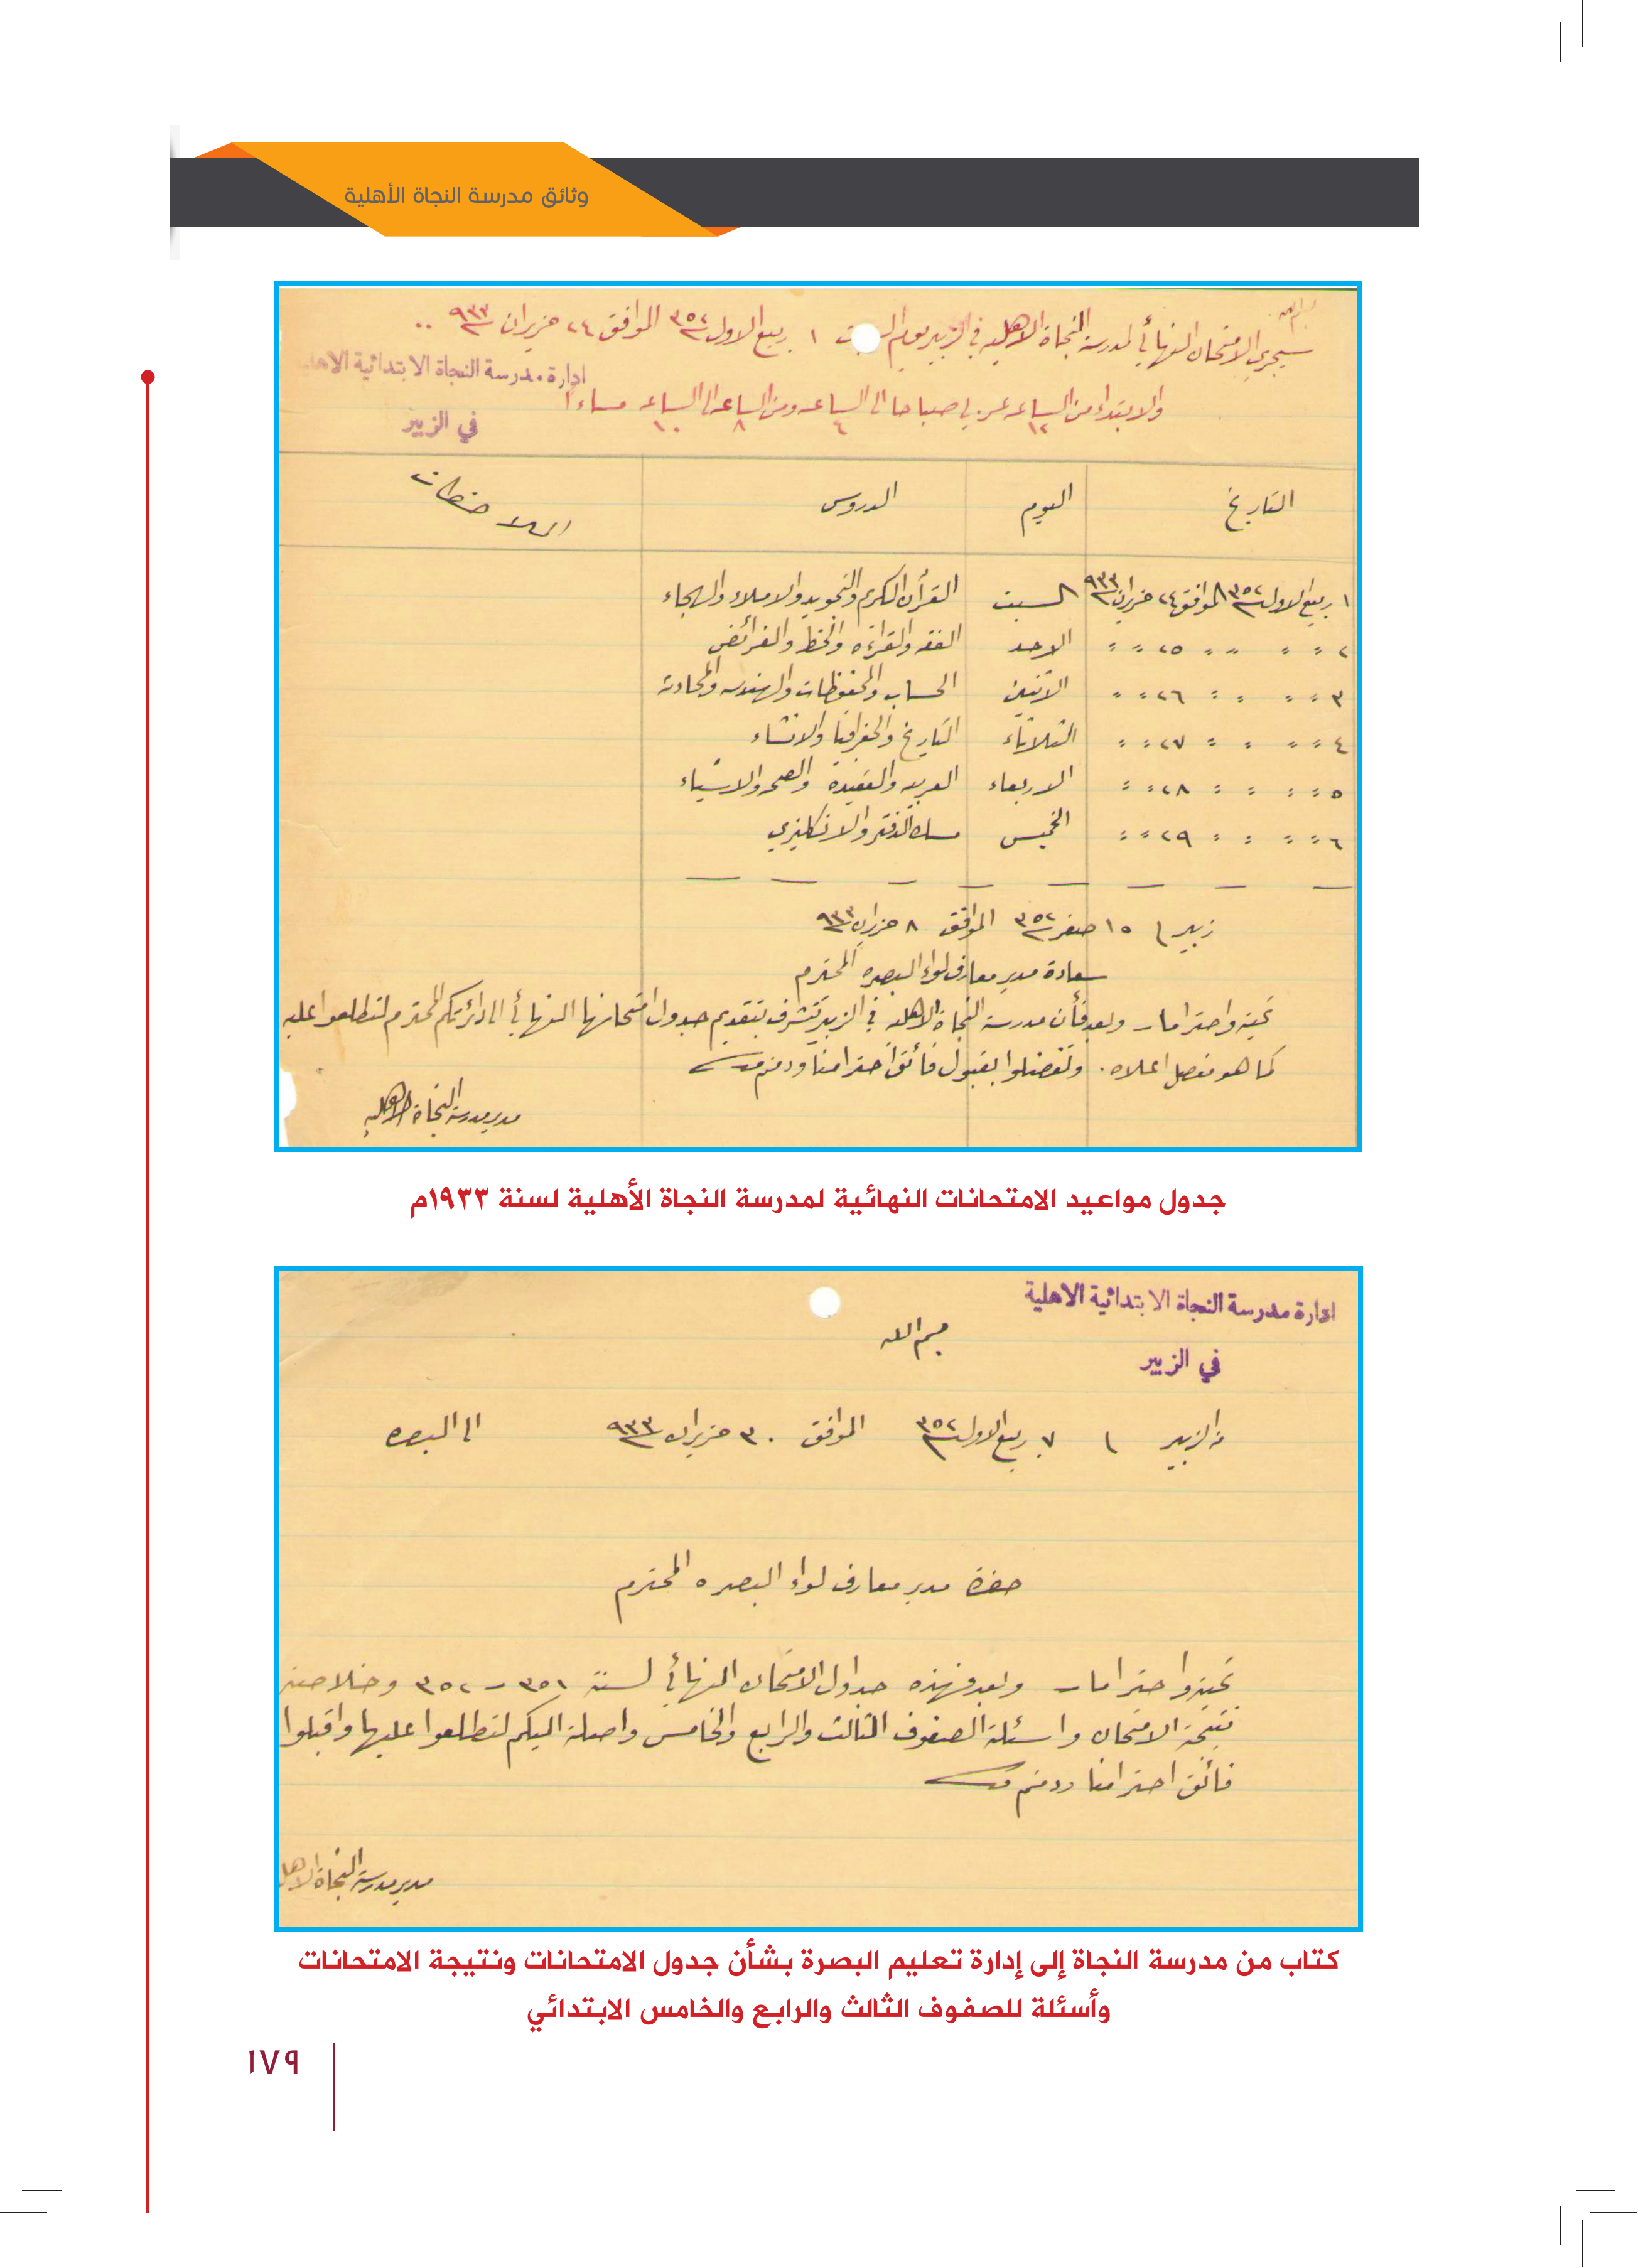 وثائق مدرسة النجاة الأهلية
بسم الله
سيجري الامتحان النهائي لمدرسة النجاة الاهليه في الزبير يوم السبت ١ ربيع الاول ٣٥٢ الموافق ٢٤ حزيران ٩٣٣
ادارة مدرسة النجاة الابتدائية الاهلية
والابتداء من الساعه ١٢ عربي صباحا الى الساعه ٤ ومن الساعه ٨ الى الساعه ١٠ مساءاً
في الزبير
التاريخ اليوم الدروس الملاحظات
١ ربيع الاول ٣٥٢ الموافق ٢٤ حزيران ٩٣٣ السبت القرأن الكريم والتجويد والاملاء والهجاء
٢ " " " " ٢٥ " " الاحد الفقه والقراءه والخط والفرائض
٣ " " " " ٢٦ " " الاثنين الحساب والمحفوظات والهندسه والمحادثه
٤ " " " " ٢٧ " " الثلاثاء التاريخ والجغرافيا والانشاء
٥ " " " " ٢٨ " " الاربعاء العربيه والعقيدة والصحه والاشياء
٦ " " " " ٢٩ " " الخميس مسك الدفتر والانكليزي
زبير / ١٥ صفر ٣٥٢ الموافق ٨ حزيران ٩٣٣
سعادة مدير معارف لواء البصره المحترم
تحية واحتراما وبعد فأن مدرسة النجاة الاهليه في الزبير تتشرف بتقديم جدول امتحانها النهائي الى دائرتكم المحترم لتطلعوا عليه
كما هو مفصل اعلاه . وتفضلوا بقبول فائق احترامنا ودمتم
مدير مدرسة النجاة الاهليه
جدول مواعيد الامتحانات النهائية لمدرسة النجاة الأهلية لسنة ١٩٣٣م
ادارة مدرسة النجاة الابتدائية الاهلية
بسم الله
في الزبير
من الزبير / ٧ ربيع الاول ٣٥٢ الموافق ٣٠ حزيران ٩٣٣ الى البصره
حضرة مدير معارف لواء البصره المحترم
تحية واحتراما وبعد فهذه جداول الامتحان النهائي لسنة ٣٥١ - ٣٥٢ وخلاصة
نتيجة الامتحان واسئلة الصفوف الثالث والرابع والخامس واصلة اليكم لتطلعوا عليها واقبلوا
فائق احترامنا ودمتم
مدير مدرسة النجاة الاهل
كتاب من مدرسة النجاة إلى إدارة تعليم البصرة بشأن جدول الامتحانات ونتيجة الامتحانات
وأسئلة للصفوف الثالث والرابع والخامس الابتدائي
١٧٩